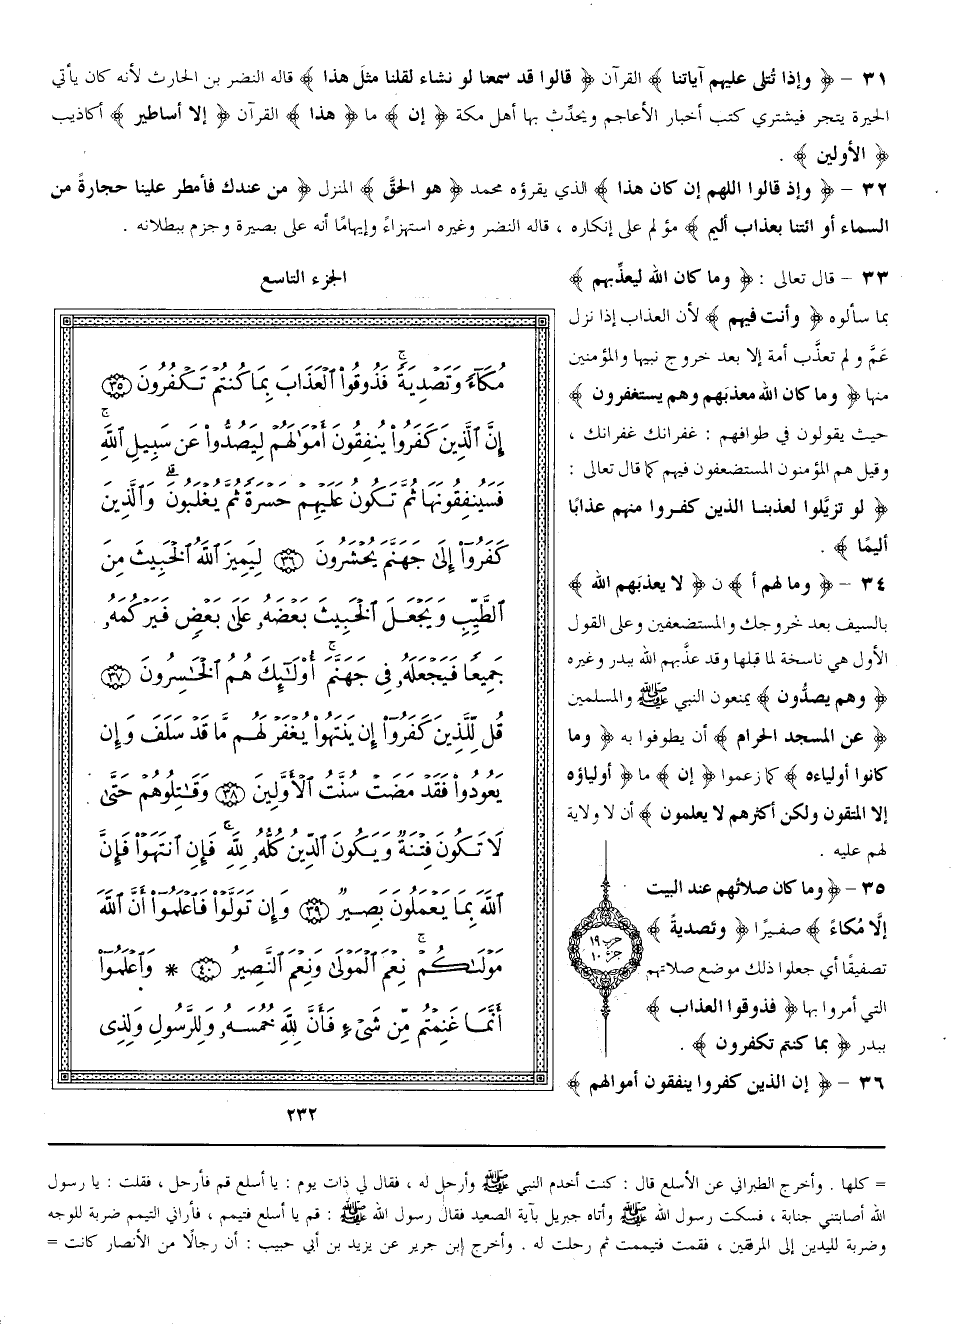 ٣١ – ﴿ وإذا تُتلى عليهم آياتنا ﴾ القرآن ﴿ قالوا قد سمعنا لو نشاء لقلنا مثلَ هذا ﴾ قاله النضر بن الحارث لأنه كان يأتي
الحيرة يتجر فيشتري كتب أخبار الأعاجم ويحدِّث بها أهل مكة ﴿ إن ﴾ ما ﴿ هذا ﴾ القرآن ﴿ إلا أساطير ﴾ أكاذيب
﴿ الأولين ﴾ .
٣٢ – ﴿ وإذ قالوا اللهم إن كان هذا ﴾ الذي يقرؤه محمد ﴿ هو الحقَّ ﴾ المنزل ﴿ من عندك فأمطر علينا حجارةً من
السماء أو ائتنا بعذاب أليم ﴾ مؤلم على إنكاره ، قاله النضر وغيره استهزاءً وإيهامًا أنه على بصيرة وجزم ببطلانه .
٣٣ – قال تعالى : ﴿ وما كان الله ليعذِّبهم ﴾
بما سألوه ﴿ وأنت فيهم ﴾ لأن العذاب إذا نزل
عَمَّ ولم تعذَّب أمة إلا بعد خروج نبيها والمؤمنين
منها ﴿ وما كان الله معذبَهم وهم يستغفرون ﴾
حيث يقولون في طوافهم : غفرانك غفرانك ،
وقيل هم المؤمنون المستضعفون فيهم كما قال تعالى :
﴿ لو تزيَّلوا لعذبنا الذين كفروا منهم عذابًا
أليمًا ﴾ .
٣٤ – ﴿ وما لهم أ ﴾ ن ﴿ لا يعذبَهم الله ﴾
بالسيف بعد خروجك والمستضعفين وعلى القول
الأول هي ناسخة لما قبلها وقد عذَّبهم الله ببدر وغيره
﴿ وهم يصدُّون ﴾ يمنعون النبي ﷺ والمسلمين
﴿ عن المسجد الحرام ﴾ أن يطوفوا به ﴿ وما
كانوا أولياءه ﴾ كما زعموا ﴿ إن ﴾ ما ﴿ أولياؤه
إلا المتقون ولكن أكثرهم لا يعلمون ﴾ أن لا ولاية
لهم عليه .
٣٥ – ﴿ وما كان صلاتُهم عند البيت
إلَّا مُكاءً ﴾ صفيرًا ﴿ وتصديةً ﴾
تصفيقًا أي جعلوا ذلك موضع صلاتهم
التي أمروا بها ﴿ فذوقوا العذاب ﴾
ببدر ﴿ بما كنتم تكفرون ﴾ .
٣٦ – ﴿ إن الذين كفروا ينفقون أموالهم ﴾
حزب ١٩
جزء ١٠
الجزء التاسع
مُكَآءً وَتَصْدِيَةً ۚ فَذُوقُوا۟ ٱلْعَذَابَ بِمَا كُنتُمْ تَكْفُرُونَ ٣٥
إِنَّ ٱلَّذِينَ كَفَرُوا۟ يُنفِقُونَ أَمْوَٰلَهُمْ لِيَصُدُّوا۟ عَن سَبِيلِ ٱللَّهِ ۚ
فَسَيُنفِقُونَهَا ثُمَّ تَكُونُ عَلَيْهِمْ حَسْرَةً ثُمَّ يُغْلَبُونَ ۗ وَٱلَّذِينَ
كَفَرُوٓا۟ إِلَىٰ جَهَنَّمَ يُحْشَرُونَ ٣٦ لِيَمِيزَ ٱللَّهُ ٱلْخَبِيثَ مِنَ
ٱلطَّيِّبِ وَيَجْعَلَ ٱلْخَبِيثَ بَعْضَهُۥ عَلَىٰ بَعْضٍ فَيَرْكُمَهُۥ
جَمِيعًا فَيَجْعَلَهُۥ فِى جَهَنَّمَ ۚ أُو۟لَٰٓئِكَ هُمُ ٱلْخَٰسِرُونَ ٣٧
قُل لِّلَّذِينَ كَفَرُوٓا۟ إِن يَنتَهُوا۟ يُغْفَرْ لَهُم مَّا قَدْ سَلَفَ وَإِن
يَعُودُوا۟ فَقَدْ مَضَتْ سُنَّتُ ٱلْأَوَّلِينَ ٣٨ وَقَٰتِلُوهُمْ حَتَّىٰ
لَا تَكُونَ فِتْنَةٌ وَيَكُونَ ٱلدِّينُ كُلُّهُۥ لِلَّهِ ۚ فَإِنِ ٱنتَهَوْا۟ فَإِنَّ
ٱللَّهَ بِمَا يَعْمَلُونَ بَصِيرٌ ٣٩ وَإِن تَوَلَّوْا۟ فَٱعْلَمُوٓا۟ أَنَّ ٱللَّهَ
مَوْلَىٰكُمْ ۚ نِعْمَ ٱلْمَوْلَىٰ وَنِعْمَ ٱلنَّصِيرُ ٤٠ * وَٱعْلَمُوٓا۟
أَنَّمَا غَنِمْتُم مِّن شَىْءٍ فَأَنَّ لِلَّهِ خُمُسَهُۥ وَلِلرَّسُولِ وَلِذِى
٢٣٢
= كلها . وأخرج الطبراني عن الأسلع قال : كنت أخدم النبي ﷺ وأرحل له ، فقال لي ذات يوم : يا أسلع قم فأرحل ، فقلت : يا رسول
الله أصابتني جنابة ، فسكت رسول الله ﷺ وأتاه جبريل بآية الصعيد فقال رسول الله ﷺ : قم يا أسلع فتيمم ، فأراني التيمم ضربة للوجه
وضربة لليدين إلى المرفقين ، فقمت فتيممت ثم رحلت له . وأخرج ابن جرير عن يزيد بن أبي حبيب : أن رجالًا من الأنصار كانت =